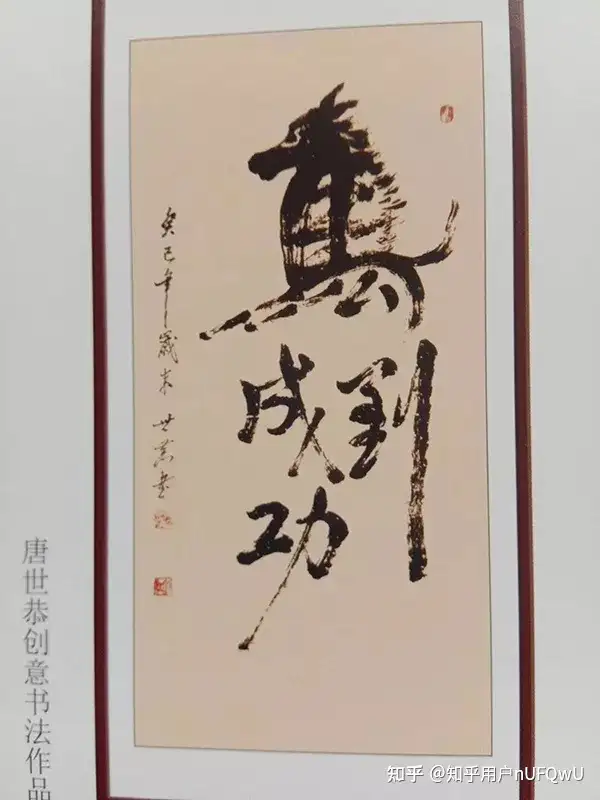 馬到
成功
癸巳年歲末世恭書
唐世恭创意书法作品
知乎 @知乎用户nUFQwU